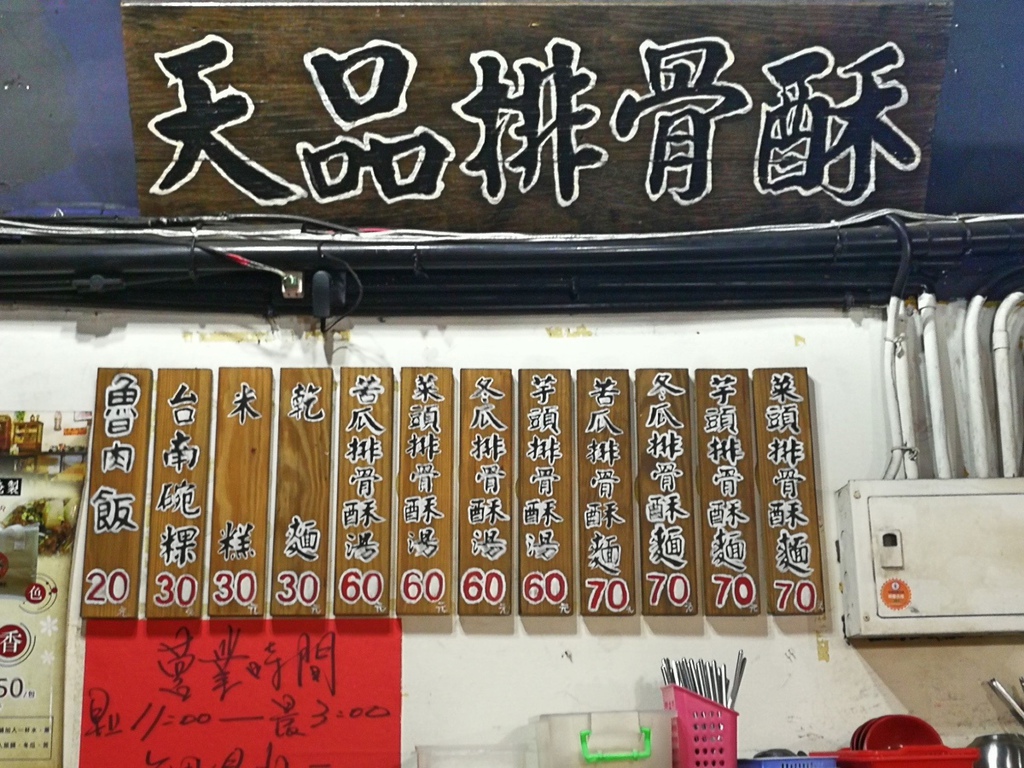 天品排骨酥
魯肉飯 20元
台南碗粿 30元
米糕 30元
乾麵 30元
苦瓜排骨酥湯 60元
菜頭排骨酥湯 60元
冬瓜排骨酥湯 60元
芋頭排骨酥湯 60元
苦瓜排骨酥麵 70元
冬瓜排骨酥麵 70元
芋頭排骨酥麵 70元
菜頭排骨酥麵 70元
營業時間
11:00 — 3:00
色
香
50/